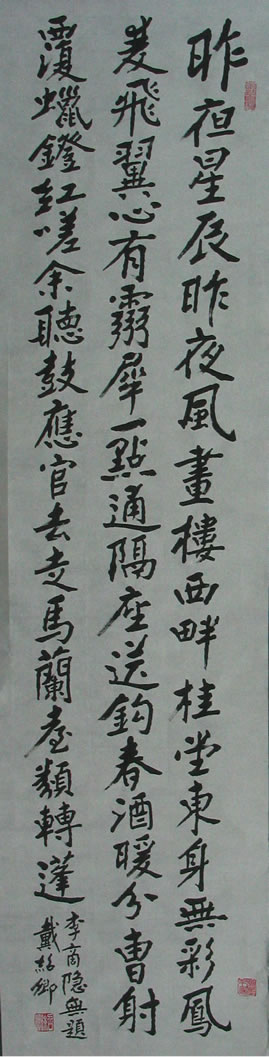 昨夜星辰昨夜風畫樓西畔桂堂東身無彩鳳
雙飛翼心有靈犀一點通隔座送鈎春酒暖分曹射
覆蠟鐙紅嗟余聽鼓應官去走馬蘭臺類轉蓬
李商隐無題
戴紹卿